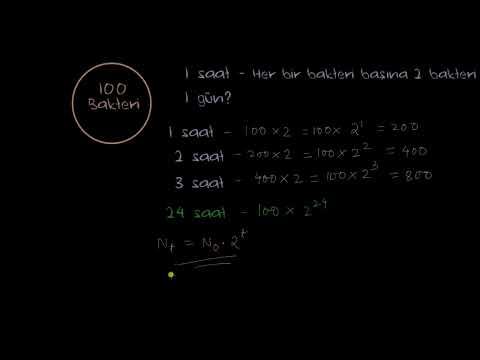 100
Bakteri
1 saat - Her bir bakteri basına 2 bakteri
1 gün?
1 saat - 100 × 2 = 100 × 2^1 = 200
2 saat - 200 × 2 = 100 × 2^2 = 400
3 saat - 400 × 2 = 100 × 2^3 = 800
24 saat - 100 × 2^24
N_t = N_0 · 2^t